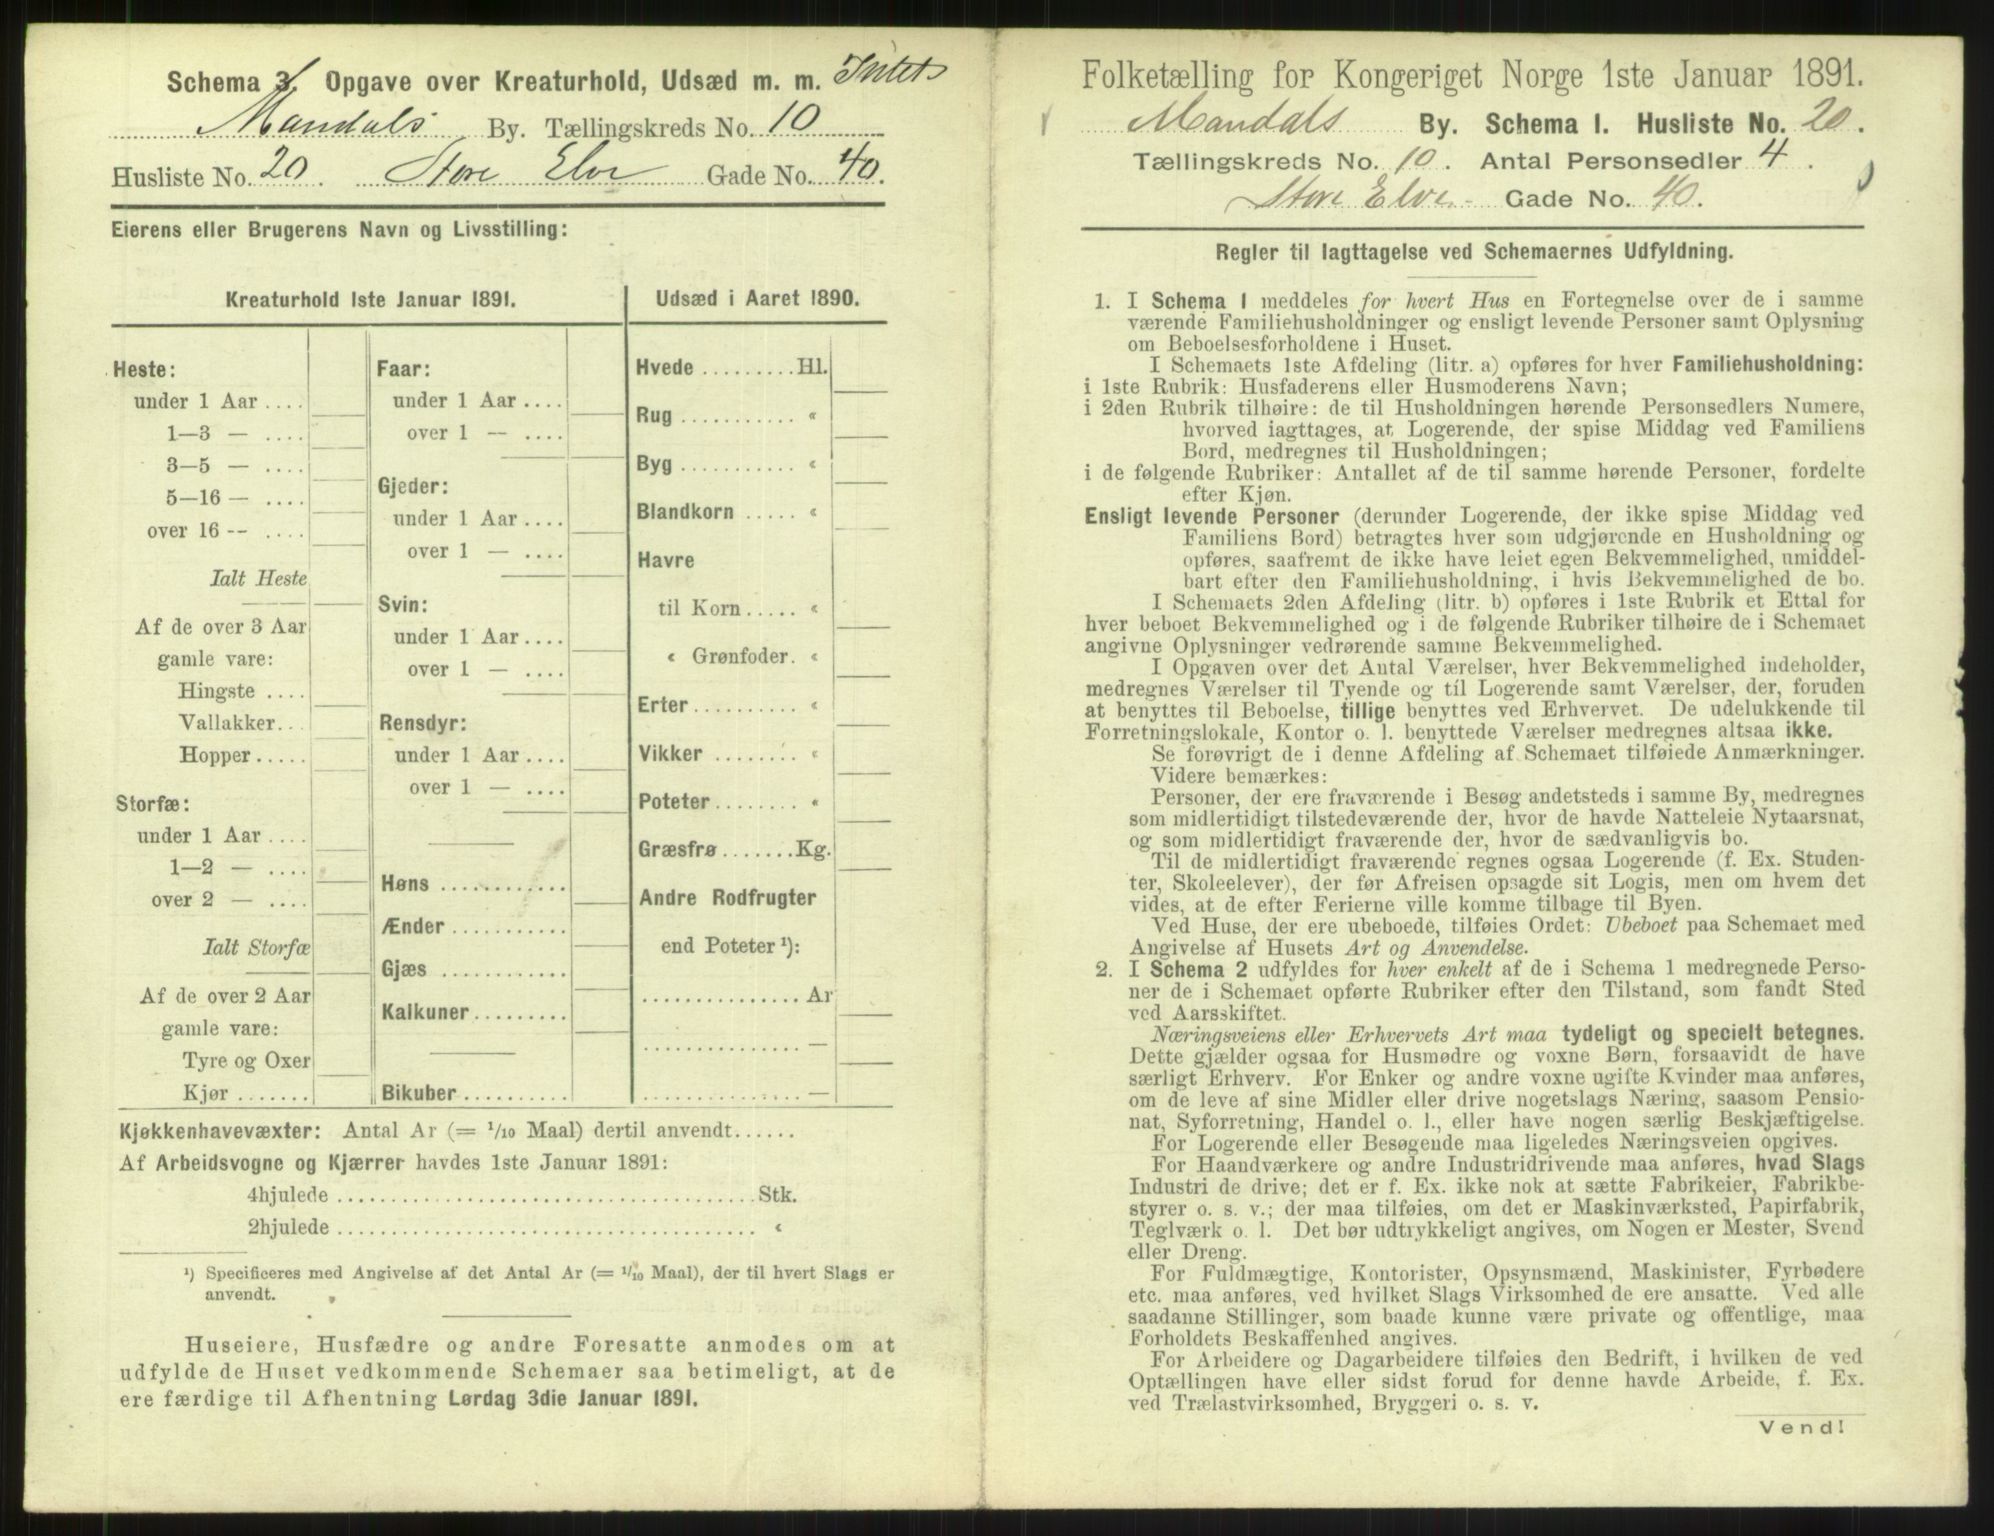 Schema 3. Opgave over Kreaturhold, Udsæd m. m. Intet
Mandals By. Tællingskreds No. 10
Husliste No. 20. Store Elve Gade No. 40.
Eierens eller Brugerens Navn og Livsstilling:
Kreaturhold 1ste Januar 1891.
Heste:
under 1 Aar ....
1—3 — ....
3—5 — ....
5—16 — ....
over 16 -- ....
Ialt Heste
Af de over 3 Aar
gamle vare:
Hingste ....
Vallakker...
Hopper.....
Storfæ:
under 1 Aar ....
1—2 — ....
over 2 — ....
Ialt Storfæ
Af de over 2 Aar
gamle vare:
Tyre og Oxer
Kjør .......
Faar:
under 1 Aar ....
over 1 — ....
Gjeder:
under 1 Aar ....
over 1 — ....
Svin:
under 1 Aar ....
over 1 — ....
Rensdyr:
under 1 Aar ....
over 1 — ....
Høns ............
Ænder ...........
Gjæs ............
Kalkuner.........
Bikuber ..........
Udsæd i Aaret 1890.
Hvede .........Hl.
Rug ........... «
Byg ........... «
Blandkorn ..... «
Havre
til Korn..... «
« Grønfoder. «
Erter.......... «
Vikker ........ «
Poteter........ «
Græsfrø.......Kg.
Andre Rodfrugter
end Poteter ¹):
............... Ar
............... —
............... —
Kjøkkenhavevæxter: Antal Ar (= 1/10 Maal) dertil anvendt......
Af Arbeidsvogne og Kjærrer havdes 1ste Januar 1891:
4hjulede ....................................... Stk.
2hjulede ....................................... «
¹) Specificeres med Angivelse af det Antal Ar (= 1/10 Maal), der til hvert Slags er
anvendt.
Huseiere, Husfædre og andre Foresatte anmodes om at
udfylde de Huset vedkommende Schemaer saa betimeligt, at de
ere færdige til Afhentning Lørdag 3die Januar 1891.
Folketælling for Kongeriget Norge 1ste Januar 1891.
Mandals By. Schema I. Husliste No. 20.
Tællingskreds No. 10. Antal Personsedler 4.
Store Elve Gade No. 40.
Regler til Iagttagelse ved Schemaernes Udfyldning.
1. I Schema 1 meddeles for hvert Hus en Fortegnelse over de i samme
værende Familiehusholdninger og ensligt levende Personer samt Oplysning
om Beboelsesforholdene i Huset.
I Schemaets 1ste Afdeling (litr. a) opføres for hver Familiehusholdning:
i 1ste Rubrik: Husfaderens eller Husmoderens Navn;
i 2den Rubrik tilhøire: de til Husholdningen hørende Personsedlers Numere,
hvorved iagttages, at Logerende, der spise Middag ved Familiens
Bord, medregnes til Husholdningen;
i de følgende Rubriker: Antallet af de til samme hørende Personer, fordelte
efter Kjøn.
Ensligt levende Personer (derunder Logerende, der ikke spise Middag ved
Familiens Bord) betragtes hver som udgjørende en Husholdning og
opføres, saafremt de ikke have leiet egen Bekvemmelighed, umiddel-
bart efter den Familiehusholdning, i hvis Bekvemmelighed de bo.
I Schemaets 2den Afdeling (litr. b) opføres i 1ste Rubrik et Ettal for
hver beboet Bekvemmelighed og i de følgende Rubriker tilhøire de i Schemaet
angivne Oplysninger vedrørende samme Bekvemmelighed.
I Opgaven over det Antal Værelser, hver Bekvemmelighed indeholder,
medregnes Værelser til Tyende og til Logerende samt Værelser, der, foruden
at benyttes til Beboelse, tillige benyttes ved Erhvervet. De udelukkende til
Forretningslokale, Kontor o. l. benyttede Værelser medregnes altsaa ikke.
Se forøvrigt de i denne Afdeling af Schemaet tilføiede Anmærkninger.
Videre bemærkes:
Personer, der ere fraværende i Besøg andetsteds i samme By, medregnes
som midlertidigt tilstedeværende der, hvor de havde Natteleie Nytaarsnat,
og som midlertidigt fraværende der, hvor de sædvanligvis bo.
Til de midlertidigt fraværende regnes ogsaa Logerende (f. Ex. Studen-
ter, Skoleelever), der før Afreisen opsagde sit Logis, men om hvem det
vides, at de efter Ferierne ville komme tilbage til Byen.
Ved Huse, der ere ubeboede, tilføies Ordet: Ubeboet paa Schemaet med
Angivelse af Husets Art og Anvendelse.
2. I Schema 2 udfyldes for hver enkelt af de i Schema 1 medregnede Perso-
ner de i Schemaet opførte Rubriker efter den Tilstand, som fandt Sted
ved Aarsskiftet.
Næringsveiens eller Erhvervets Art maa tydeligt og specielt betegnes.
Dette gjælder ogsaa for Husmødre og voxne Børn, forsaavidt de have
særligt Erhverv. For Enker og andre voxne ugifte Kvinder maa anføres,
om de leve af sine Midler eller drive nogetslags Næring, saasom Pensio-
nat, Syforretning, Handel o. l., eller have nogen særlig Beskjæftigelse.
For Logerende eller Besøgende maa ligeledes Næringsveien opgives.
For Haandværkere og andre Industridrivende maa anføres, hvad Slags
Industri de drive; det er f. Ex. ikke nok at sætte Fabrikeier, Fabrikbe-
styrer o. s. v.; der maa tilføies, om det er Maskinværksted, Papirfabrik,
Teglværk o. l. Det bør udtrykkeligt angives, om Nogen er Mester, Svend
eller Dreng.
For Fuldmægtige, Kontorister, Opsynsmænd, Maskinister, Fyrbødere
etc. maa anføres, ved hvilket Slags Virksomhed de ere ansatte. Ved alle
saadanne Stillinger, som baade kunne være private og offentlige, maa
Forholdets Beskaffenhed angives.
For Arbeidere og Dagarbeidere tilføies den Bedrift, i hvilken de ved
Optællingen have eller sidst forud for denne havde Arbeide, f. Ex.
ved Trælastvirksomhed, Bryggeri o. s. v.
Vend!